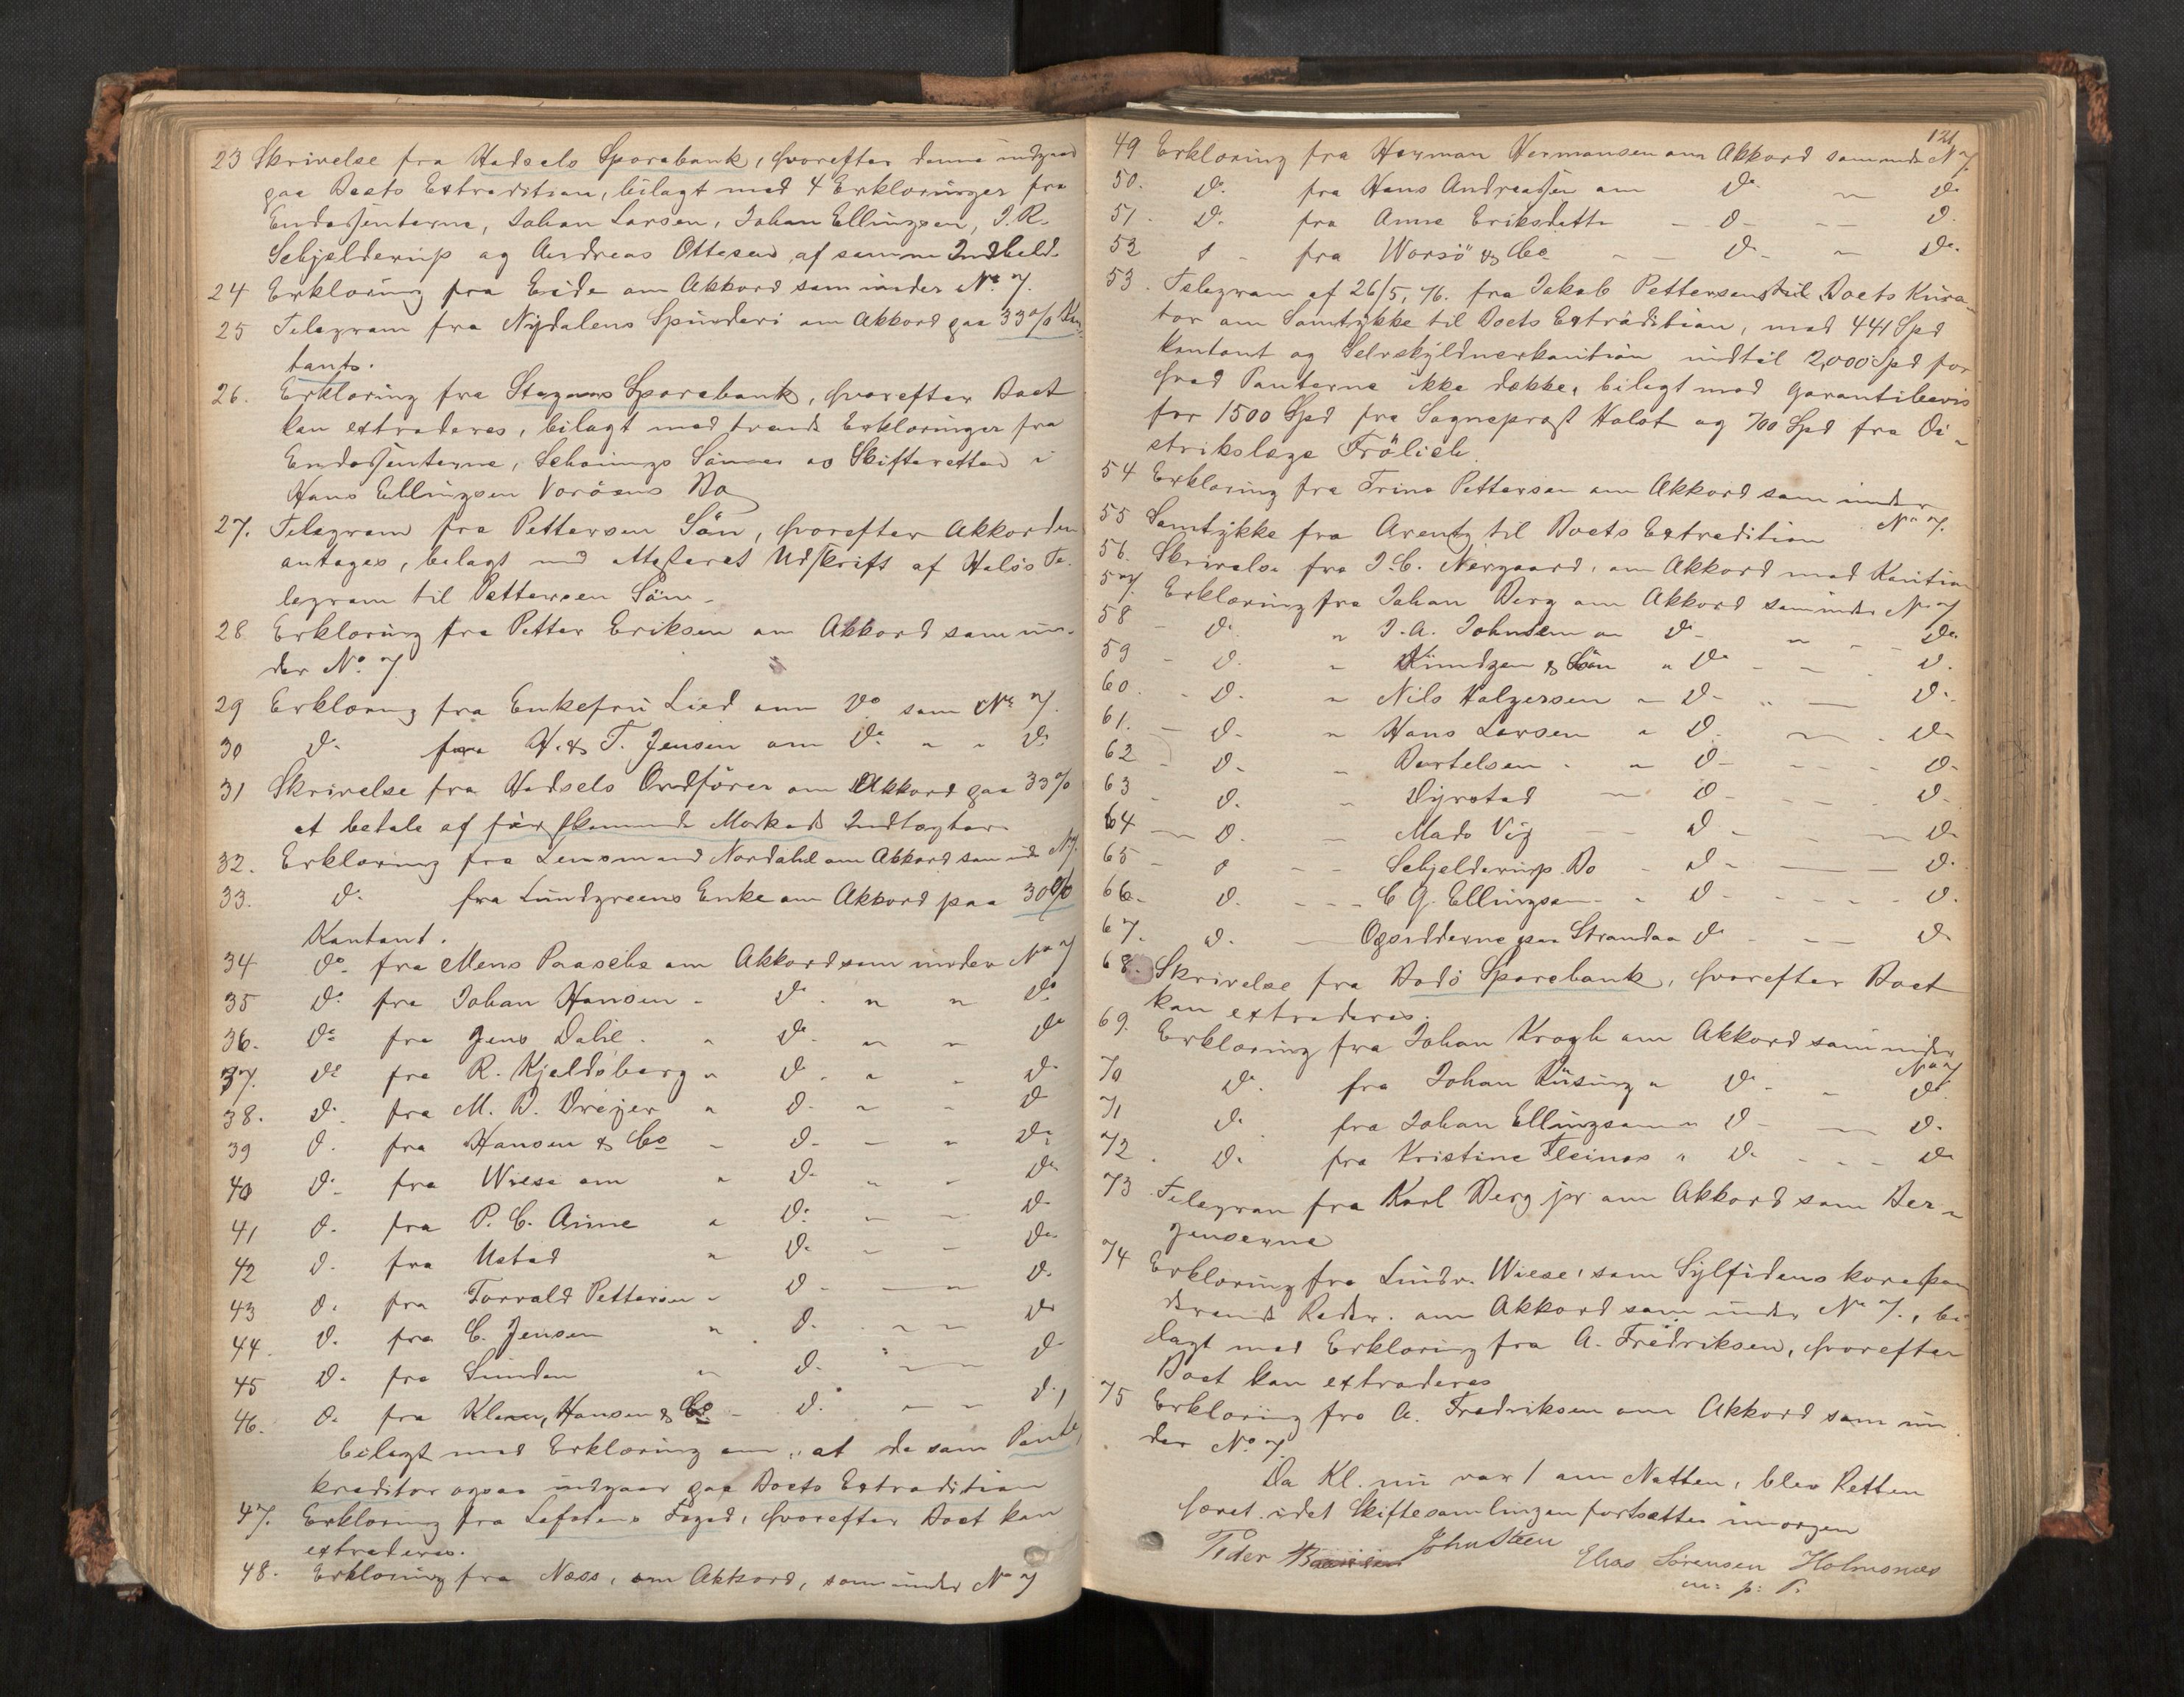 23 Skrivelse fra Hadsels Sparebank, hvorefter denne indgaar
paa Boets Extradition, bilagt med 4 Erklæringer fra
Endossenterne, Johan Larsen, Johan Ellingsen, J. R.
Schjelderup og Andreas Ottesen af samme Indhold.
24 Erklæring fra Eide om Akkord som under No 7.
25 Telegram fra Nydalens Spinderi om Akkord paa 33% Kon-
tant.
26. Erklæring fra Stegens Sparebank, hvorefter Boet
kan extraderes, bilagt med trende Erklæringer fra
Endossenterne, Schønings Sønner og Skifteretten i
Hans Ellingsen Bo
27. Telegram fra Pettersen Søn, hvorefter Akkorden
antages, bilagt med attesteret Udskrift af Te-
legram til Pettersen Søn.
28 Erklæring fra Petter Eriksen om Akkord som un-
der No 7
29 Erklæring fra Enkefru Lied om Do som No 7.
30 Do fra H. & T. Jensen om Do " " Do
31 Skrivelse fra Hadsels Ordfører om Akkord paa 33%
at betale af førstkommende Markeds Indtægter
32. Erklæring fra Lensmand Nordahl om Akkord som under No 7.
33. Do fra Lundgreens Enke om Akkord paa 30%
Kontant.
34 Do fra Mens Paasche om Akkord som under No 7
35 Do fra Johan Hansen - Do " " Do
36. Do fra Jens Dahl. " Do " " Do
37. Do fra R. Kjeldsberg " Do " " Do
38. Do fra M. B. Dreyer " Do " " Do
39 Do fra Hansen & Co - Do - " Do
40 Do fra Wiese om " Do " - Do
41 Do fra P. C. Anne " Do - - Do
42 Do fra Ustad " Do - - Do
43 Do fra Torvald Pettersen - Do - " Do
44. Do fra C. Jensen " Do " " Do
45 Do fra Lunden " Do - - Do
46. Do fra Klæer, Hansen & Co - Do - - Do,
bilagt med Erklæring om, at de som Pante-
kreditor ogsaa indgaar paa Boets Extradition
47. Erklæring fra Lofotens Foged, hvorefter Boet kan
extraderes.
48. Erklæring fra Næss, om Akkord, som under No 7
121
49 Erklæring fra Herman Hermansen om Akkord som under No 7.
50. Do fra Hans Andreassen om Do " Do
51. Do fra Anne Eriksdatter - Do - - Do
52 Do fra Worsø & Co - - Do - " Do.
53. Telegram af 26/5, 76. fra Jakob Pettersen til Boets Kura-
tor om Samtykke til Boets Extradition, mod 441 Spd
kontant og Selvskyldnerkaution indtil 2,000 Spd for
hvad Panterne ikke dække, bilagt med Garantibevis
for 1500 Spd fra Sogneprest Holst og 700 Spd fra Di-
striktslæge Frölich.
54 Erklæring fra Trine Pettersen om Akkord som under
No 7.
55 Samtykke fra Arentz til Boets Extradition
56. Skrivelse fra J. C. Nergaard, om Akkord mod Kaution
57. Erklæring fra Johan Berg om Akkord som under No 7
58 - Do " J. A. Johnsen om Do " - - Do.
59 - Do - Kundgen & Søn " Do - - Do.
60. - Do " Nils Holgersen - Do " - Do.
61. - Do " Hans Larsen " Do - - Do
62 - Do - Bertelsen - " Do - - - Do
63 - Do - Dyrstad - Do - - - Do
64 - Do - Mads Vig - Do - - - Do
65 - Do - - Schjelderups Bo - Do - - Do.
66. Do - - - C G. Ellingsen - " Do - - - - Do.
67. Do - Opsidderne paa Strandaa Do - - - Do
68. Skrivelse fra Bodø Sparebank, hvorefter Boet
kan extraderes.
69. Erklæring fra Johan Krogh om Akkord som under
No 7
70 Do fra Johan Rüsing " Do - - Do
71 Do fra Johan Ellingsen " Do - - Do.
72. Do fra Kristine Fleines " Do - - - Do
73 Telegram fra Karl Berg jr om Akkord som Ber-
genserne
74 Erklæring fra Lundr. Wiese, som Sylfidens korrespon-
derende Reder. om Akkord som under No 7., bi-
lagt med Erklæring fra A. Fredriksen, hvorefter
Boet kan extraderes
75 Erklæring fra A. Fredriksen om Akkord som un-
der No 7.
Da Kl. nu var 1 om Natten, blev Retten
hævet idet Skiftesamlingen fortsættes imorgen
Peder John Steen Elias Sørensen Holmsnes
m. p. P.